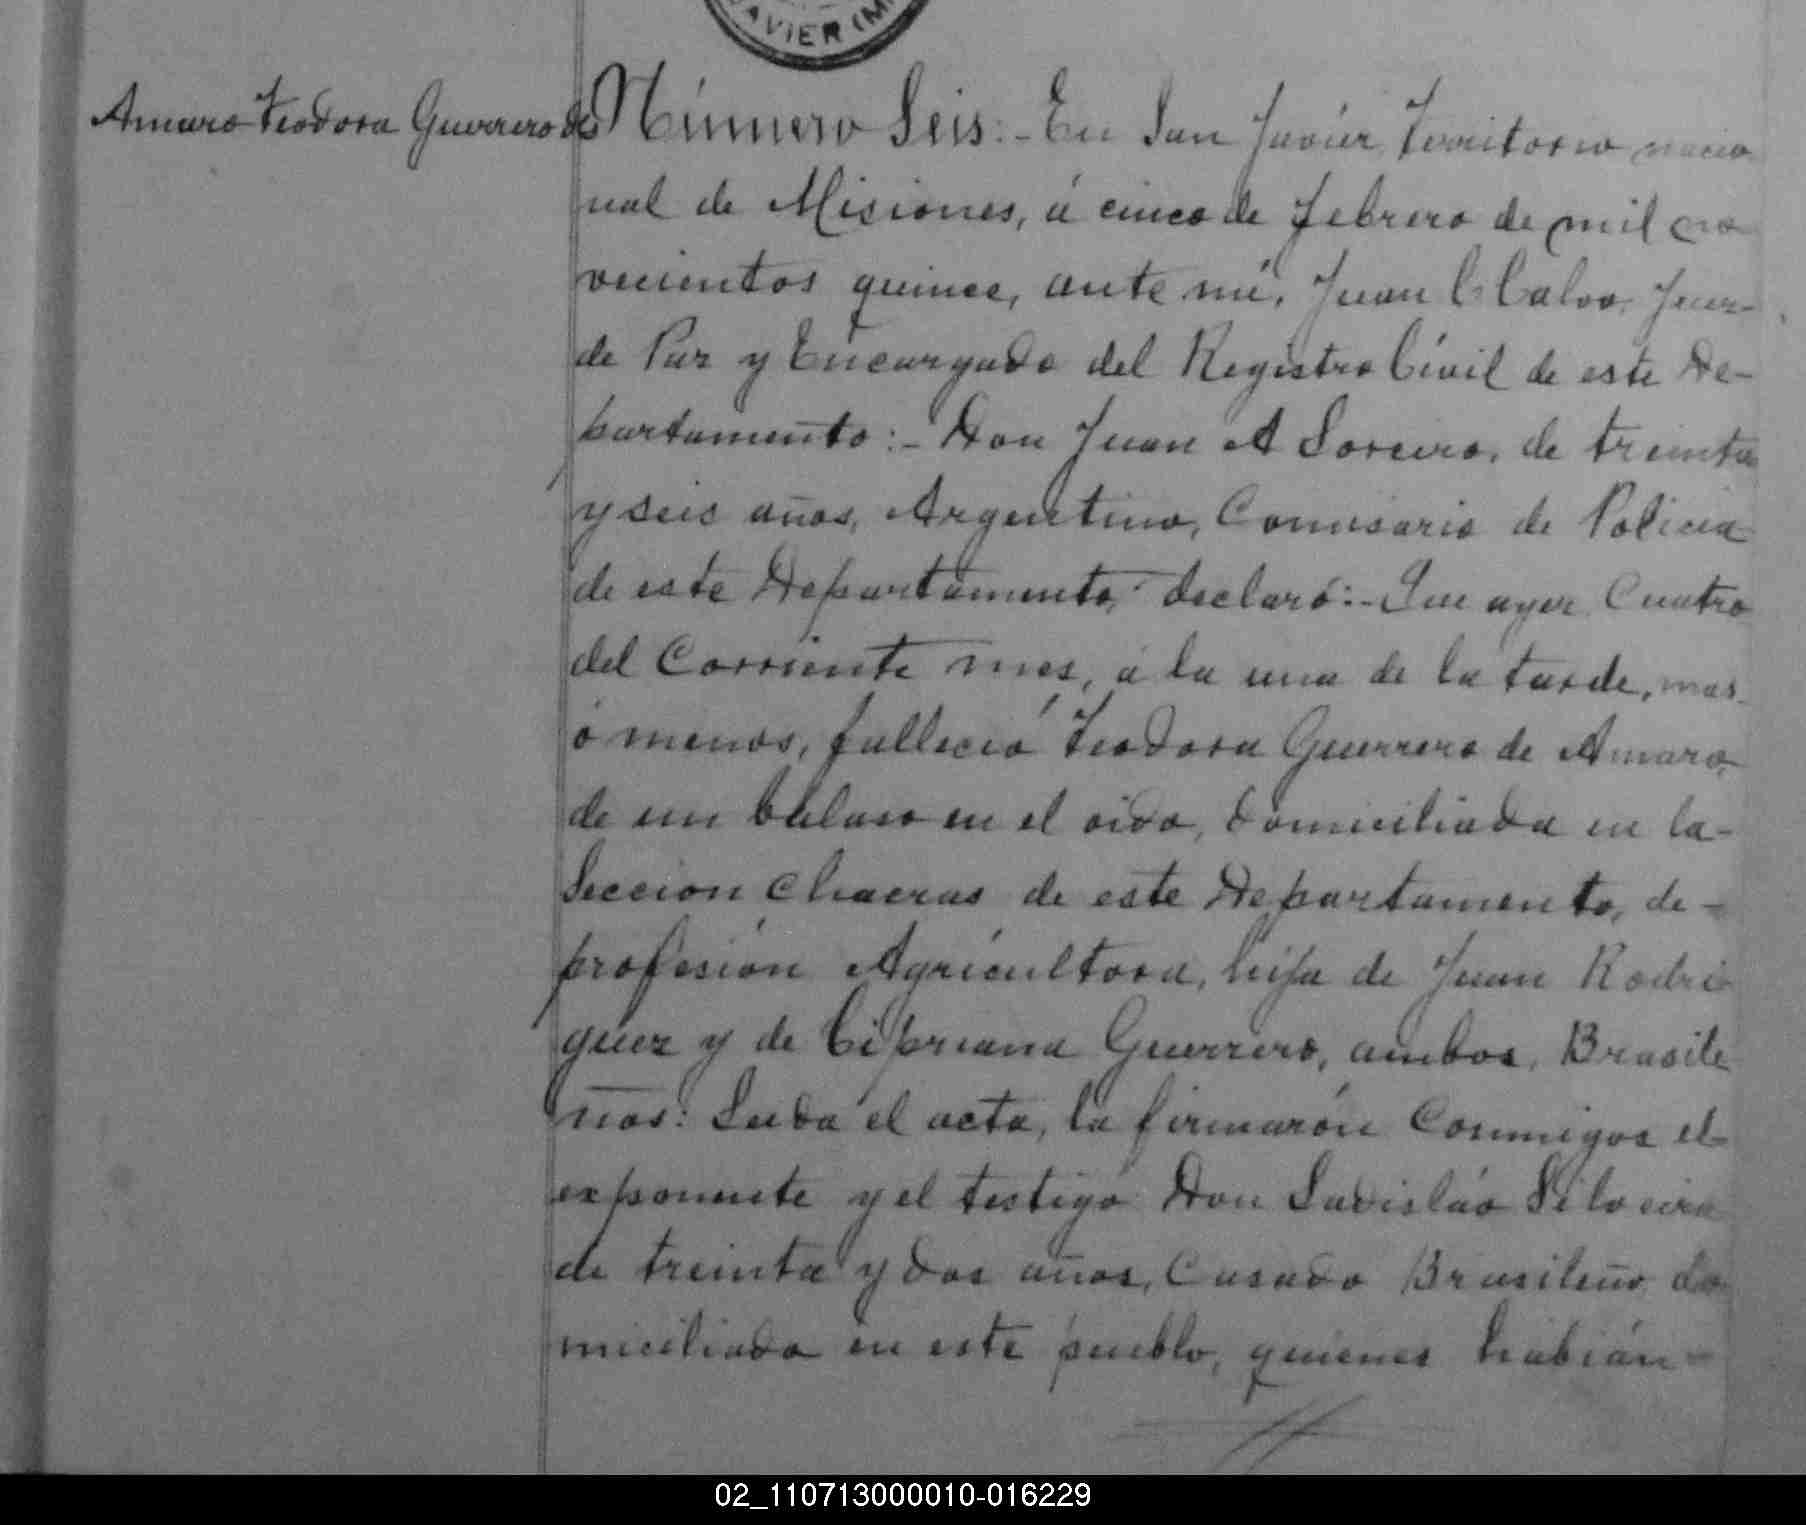 JAVIER (M
Amaro Teodora Guerrero de
Número Seis:- En San Javier, Territorio nacio
nal de Misiones, á cinco de febrero de mil no
vecientos quince, ante mí, Juan C Calvo, Juez
de Paz y Encargado del Registro Civil de este De-
partamento:- Don Juan A Loreiro, de treinta
y seis años, Argentino, Comisario de Policia
de este Departamento, declaró:- Que ayer Cuatro
del Corriente mes, á la una de la tarde, mas
ó menos, falleció Teodora Guerrero de Amaro,
de un balaso en el oido, domiciliada en la-
Seccion Chacras de este Departamento, de-
profesión Agrícultora, hija de Juan Rodri
guez y de Cipriana Guerrero, ambos, Brasile
ños: Leida el acta, la firmarón Conmigos el
exponente y el testigo Don Ladisláo Silveira
de treinta y dos años, Casado Brasileño, do
miciliado en este pueblo, quienes habián
02_110713000010-016229